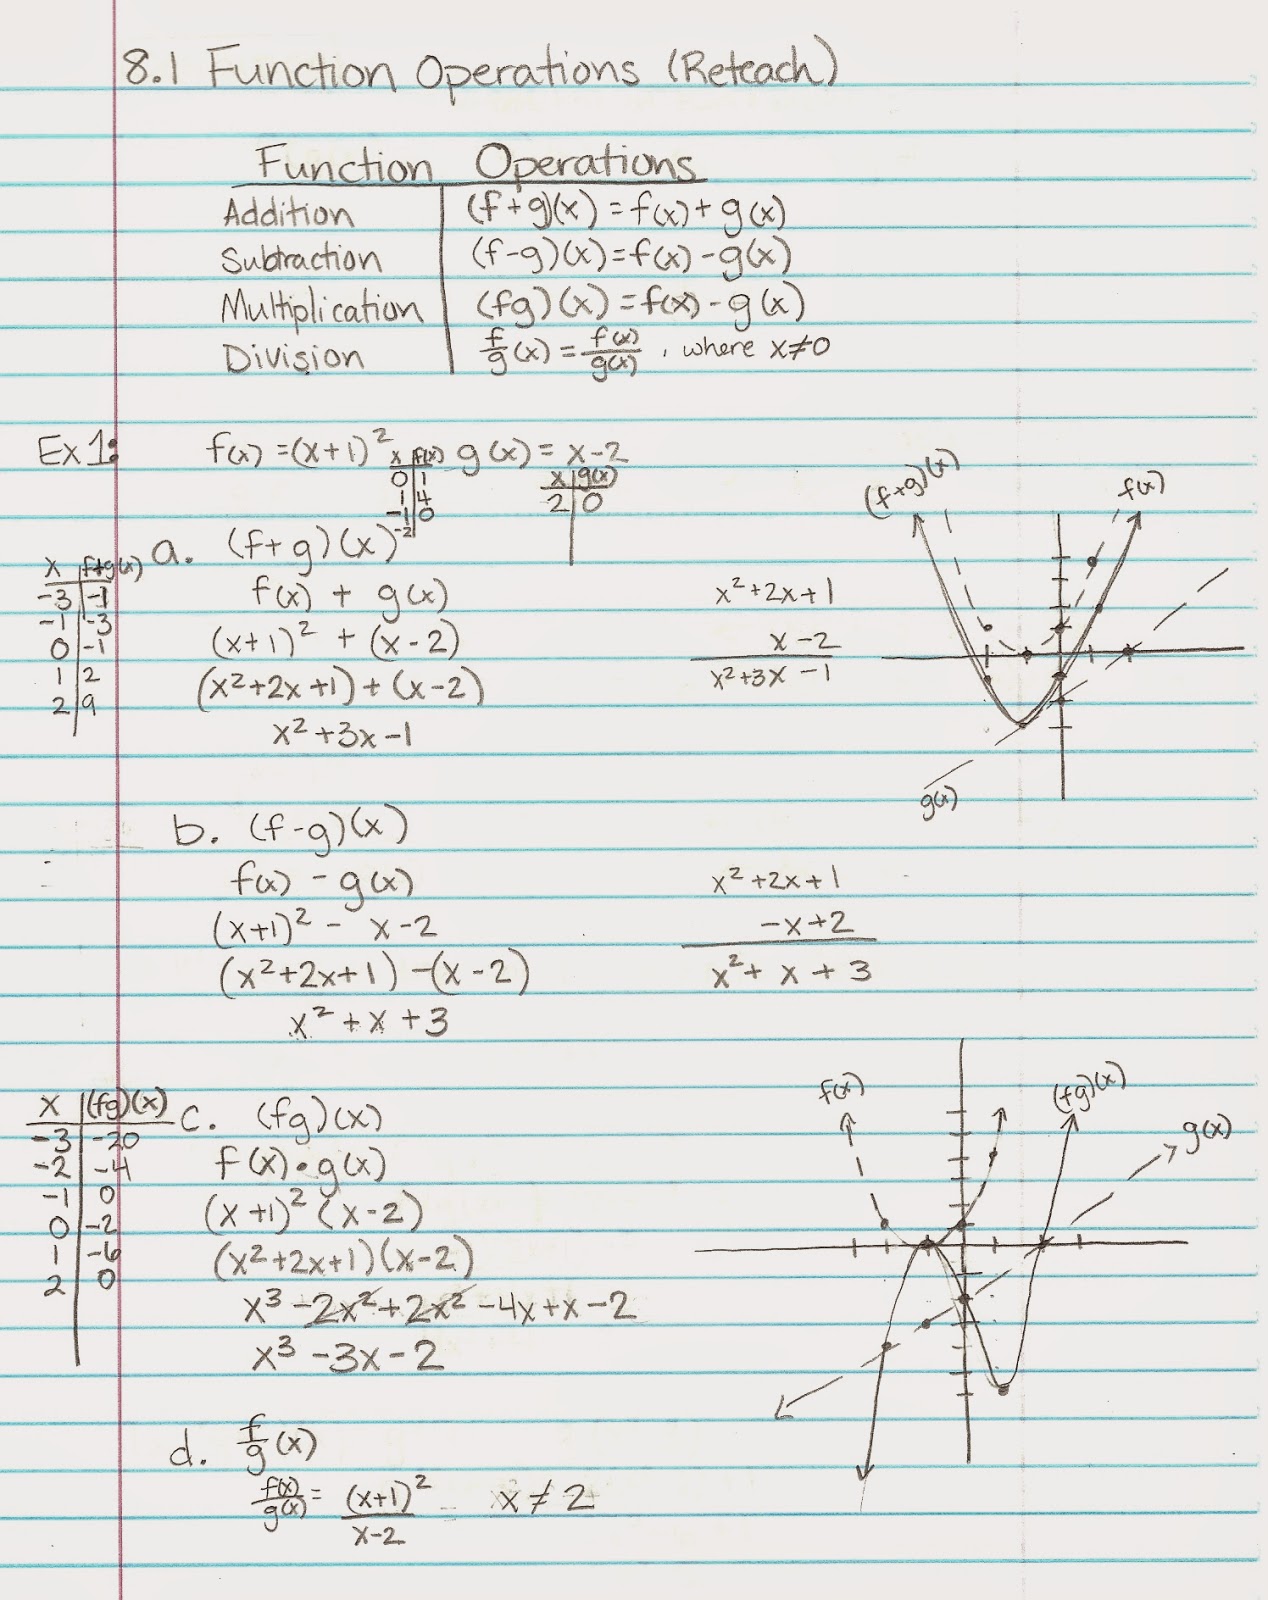 8.1 Function Operations (Reteach)
Function Operations
Addition (f+g)(x) = f(x) + g(x)
Subtraction (f-g)(x) = f(x) - g(x)
Multiplication (fg)(x) = f(x) - g(x)
Division f/g (x) = f(x)/g(x), where x≠0
Ex 1: f(x) = (x+1)² g(x) = x-2
x f(x)
0 1
1 4
-1 0
-2
x g(x)
2 0
a. (f+g)(x)
f(x) + g(x)
(x+1)² + (x-2)
(x²+2x+1) + (x-2)
x²+3x-1
x f+g(x)
-3 -1
-1 -3
0 -1
1 2
2 9
x²+2x+1
x-2
x²+3x-1
(f+g)(x)
f(x)
g(x)
b. (f-g)(x)
f(x) - g(x)
(x+1)² - x-2
(x²+2x+1) -(x-2)
x²+x+3
x²+2x+1
-x+2
x²+x+3
x (fg)(x)
-3 -20
-2 -4
-1 0
0 -2
1 -6
2 0
c. (fg)(x)
f(x)•g(x)
(x+1)² (x-2)
(x²+2x+1)(x-2)
x³-2x²+2x²-4x+x-2
x³-3x-2
f(x)
(fg)(x)
g(x)
d. f/g (x)
f(x)/g(x) = (x+1)²/x-2 x≠2